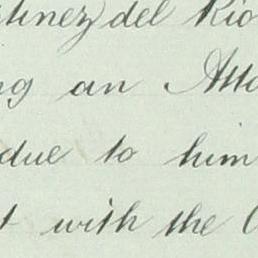 tinez del Rio
ng an Atto
due to him
t with the C